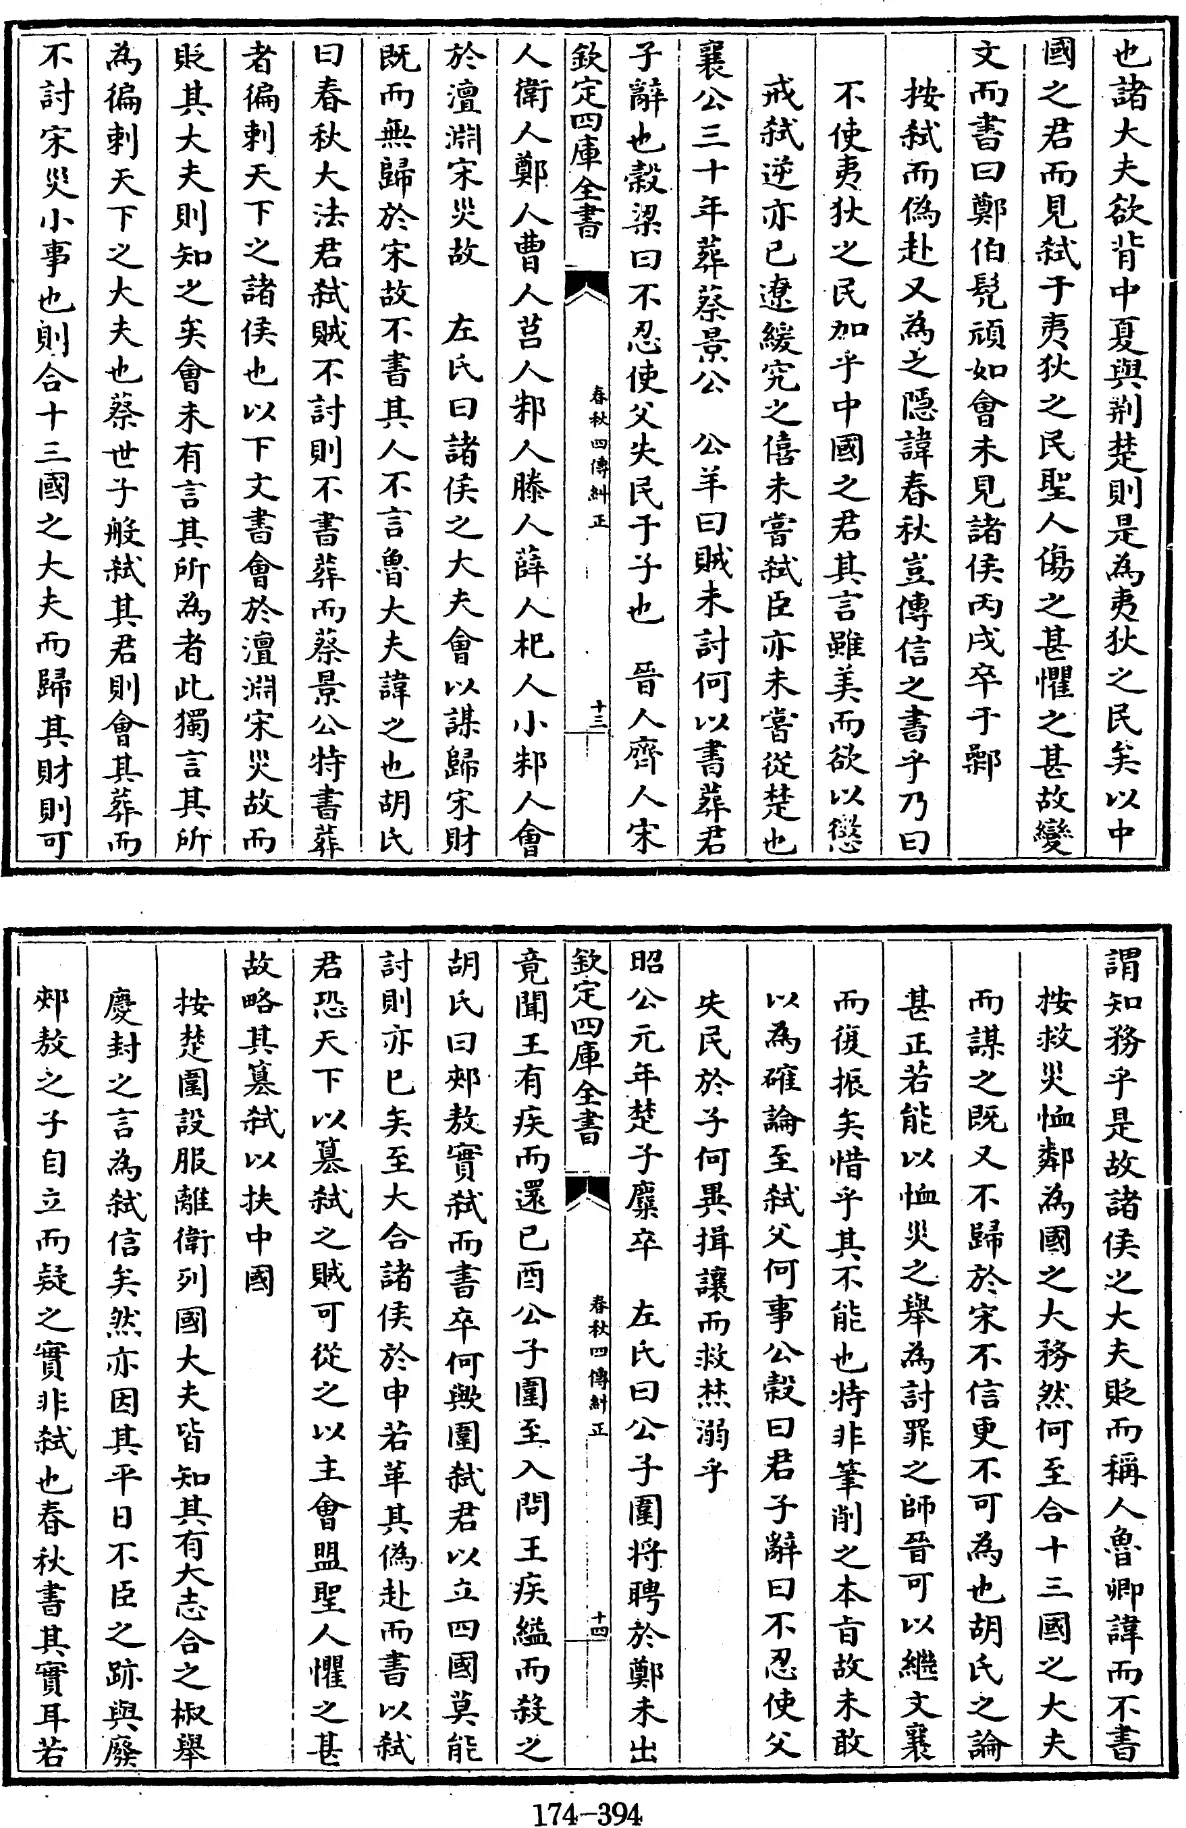 也諸大夫欲背中夏與荆楚則是為夷狄之民矣以中
國之君而見弑于夷狄之民聖人傷之甚懼之甚故變
文而書曰鄭伯髠頑如會未見諸侯丙戌卒于鄵
按弑而偽赴又為之隱諱春秋豈傳信之書乎乃曰
不使夷狄之民加乎中國之君其言雖美而欲以懲
戒弑逆亦已遼緩究之僖未嘗弑臣亦未嘗從楚也
襄公三十年葬蔡景公　公羊曰賊未討何以書葬君
子辭也穀梁曰不忍使父失民于子也　晉人齊人宋
欽定四庫全書
春秋四傳糾正
十三
人衛人鄭人曹人莒人邾人滕人薛人杞人小邾人會
於澶淵宋災故　左氏曰諸侯之大夫會以謀歸宋財
既而無歸於宋故不書其人不言魯大夫諱之也胡氏
曰春秋大法君弑賊不討則不書葬而蔡景公特書葬
者徧刺天下之諸侯也以下文書會於澶淵宋災故而
貶其大夫則知之矣會未有言其所為者此獨言其所
為徧刺天下之大夫也蔡世子般弑其君則會其葬而
不討宋災小事也則合十三國之大夫而歸其財則可
謂知務乎是故諸侯之大夫貶而稱人魯卿諱而不書
按救災恤鄰為國之大務然何至合十三國之大夫
而謀之既又不歸於宋不信更不可為也胡氏之論
甚正若能以恤災之舉為討罪之師晉可以繼文襄
而復振矣惜乎其不能也特非筆削之本旨故未敢
以為確論至弑父何事公穀曰君子辭曰不忍使父
失民於子何異揖讓而救焚溺乎
昭公元年楚子麇卒　左氏曰公子圍将聘於鄭未出
欽定四庫全書
春秋四傳糾正
十四
竟聞王有疾而還已酉公子圍至入問王疾縊而殺之
胡氏曰郟敖實弑而書卒何歟圍弑君以立四國莫能
討則亦已矣至大合諸侯於申若革其偽赴而書以弑
君恐天下以篡弑之賊可從之以主會盟聖人懼之甚
故略其篡弑以扶中國
按楚圍設服離衛列國大夫皆知其有大志合之椒舉
慶封之言為弑信矣然亦因其平日不臣之跡與廢
郟敖之子自立而疑之實非弑也春秋書其實耳若
174-394